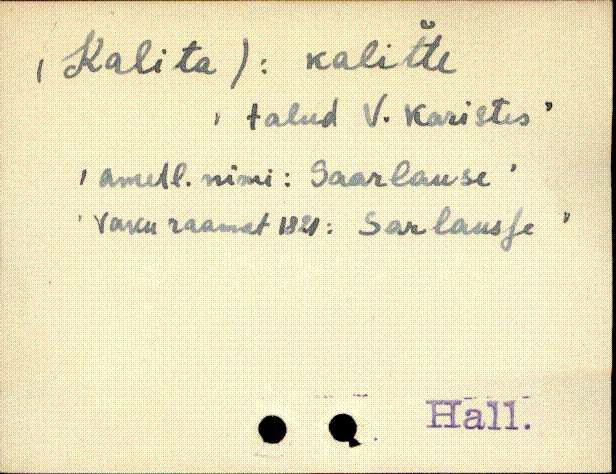 (Kalita): kalitte
, talud V. Karistes"
, ametl. nimi: Saarlause'
' Vaku raamat 1821: Sarlausse "
Hall.